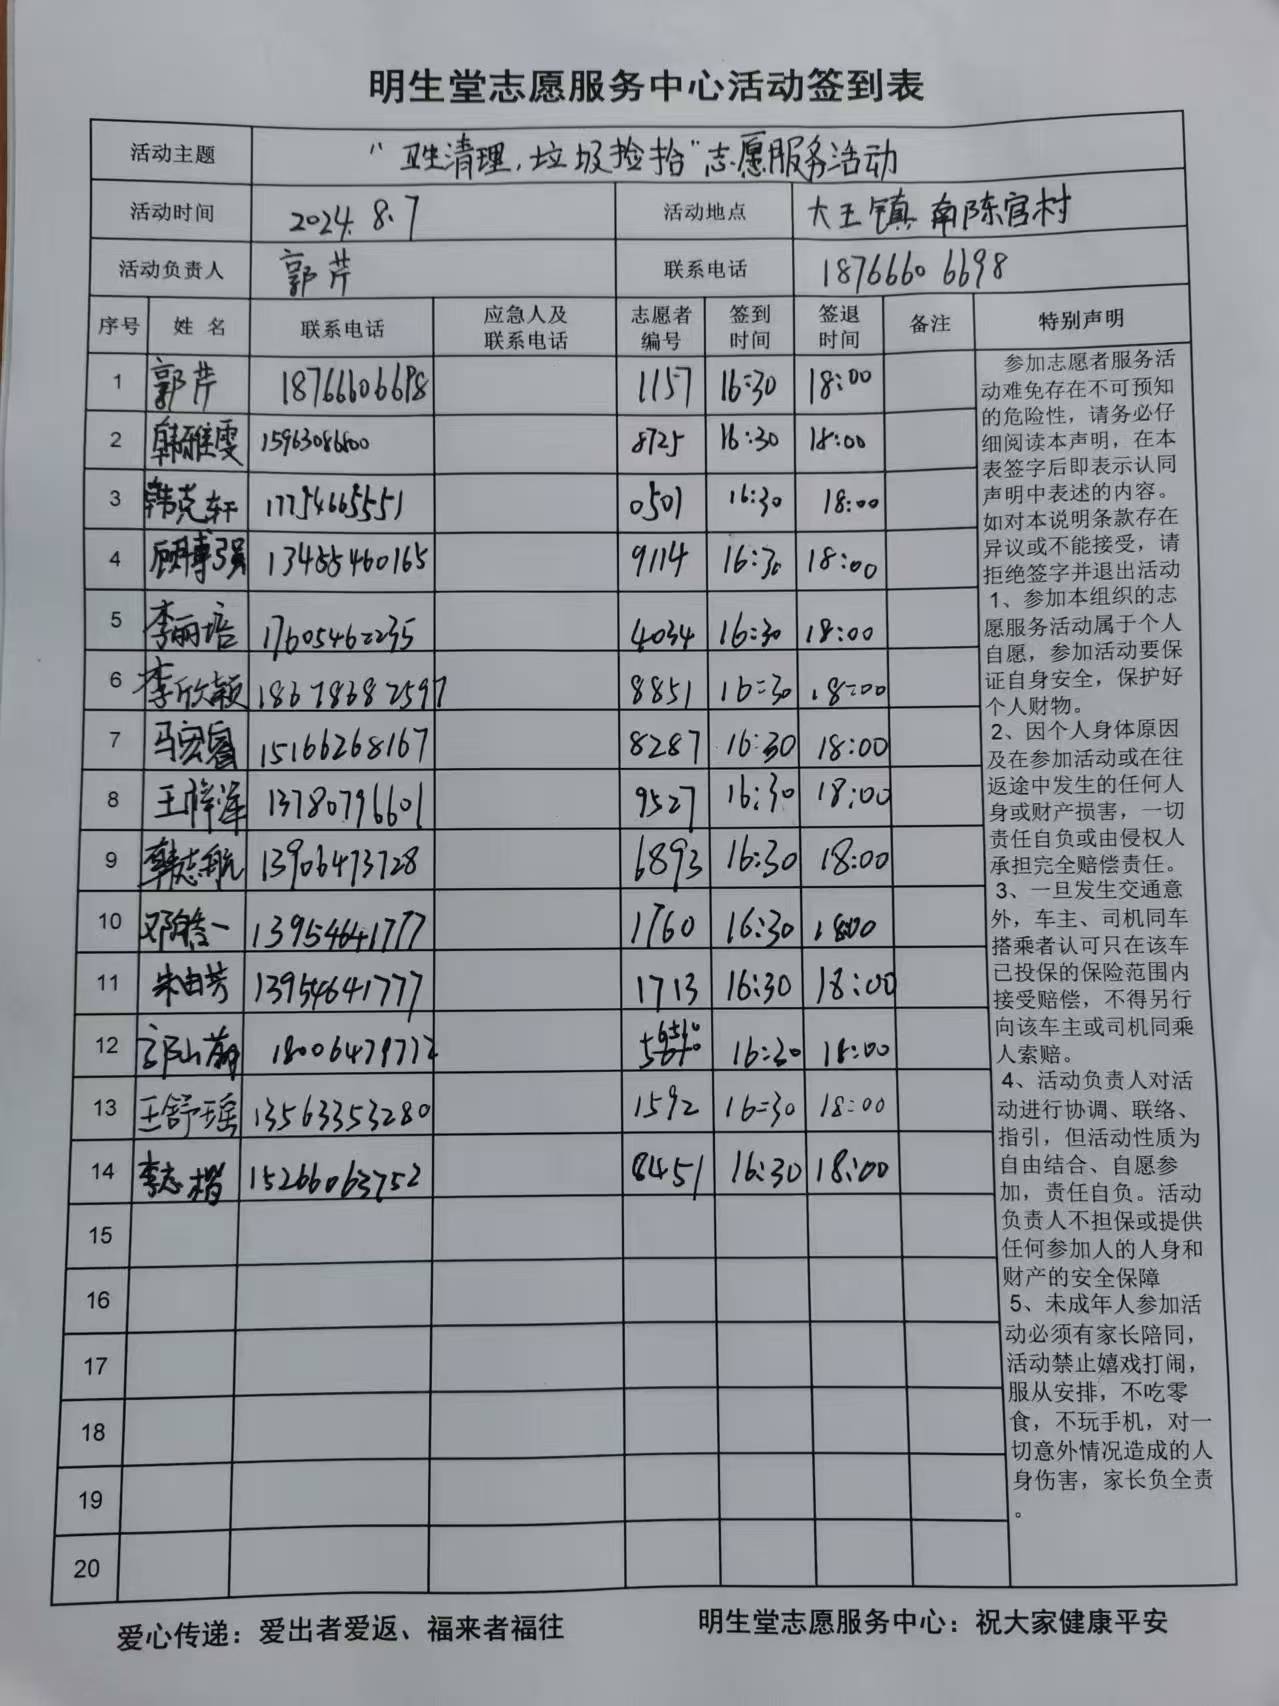 明生堂志愿服务中心活动签到表
活动主题 “卫生清理,垃圾捡拾”志愿服务活动
活动时间 2024.8.7 活动地点 大王镇南陈官村
活动负责人 郭芹 联系电话 18766606698
序号 姓名 联系电话 应急人及联系电话 志愿者编号 签到时间 签退时间 备注 特别声明
1 郭芹 18766606698 1157 16:30 18:00
2 韩雅雯 15963086800 8725 16:30 18:00
3 韩克轩 17754665551 0501 16:30 18:00
4 顾博强 13455460165 9114 16:30 18:00
5 李丽培 17605462235 4034 16:30 18:00
6 李欣颖 18678682597 8851 16:30 18:00
7 马宏睿 15166268167 8287 16:30 18:00
8 王梓泽 13780796601 9527 16:30 18:00
9 韩志航 13906473728 6893 16:30 18:00
10 邓皓一 13954641777 1760 16:30 1800
11 朱由芳 13954641777 1713 16:30 18:00
12 18006479772 16:30 18:00
13 王舒瑶 13563353280 1592 16:30 18:00
14 李志楷 15266063752 8451 16:30 18:00
15
16
17
18
19
20
参加志愿者服务活
动难免存在不可预知
的危险性，请务必仔
细阅读本声明，在本
表签字后即表示认同
声明中表述的内容。
如对本说明条款存在
异议或不能接受，请
拒绝签字并退出活动
1、参加本组织的志
愿服务活动属于个人
自愿，参加活动要保
证自身安全，保护好
个人财物。
2、因个人身体原因
及在参加活动或在往
返途中发生的任何人
身或财产损害，一切
责任自负或由侵权人
承担完全赔偿责任。
3、一旦发生交通意
外，车主、司机同车
搭乘者认可只在该车
已投保的保险范围内
接受赔偿，不得另行
向该车主或司机同乘
人索赔。
4、活动负责人对活
动进行协调、联络、
指引，但活动性质为
自由结合、自愿参
加，责任自负。活动
负责人不担保或提供
任何参加人的人身和
财产的安全保障
5、未成年人参加活
动必须有家长陪同，
活动禁止嬉戏打闹，
服从安排，不吃零
食，不玩手机，对一
切意外情况造成的人
身伤害，家长负全责
。
爱心传递：爱出者爱返、福来者福往 明生堂志愿服务中心：祝大家健康平安